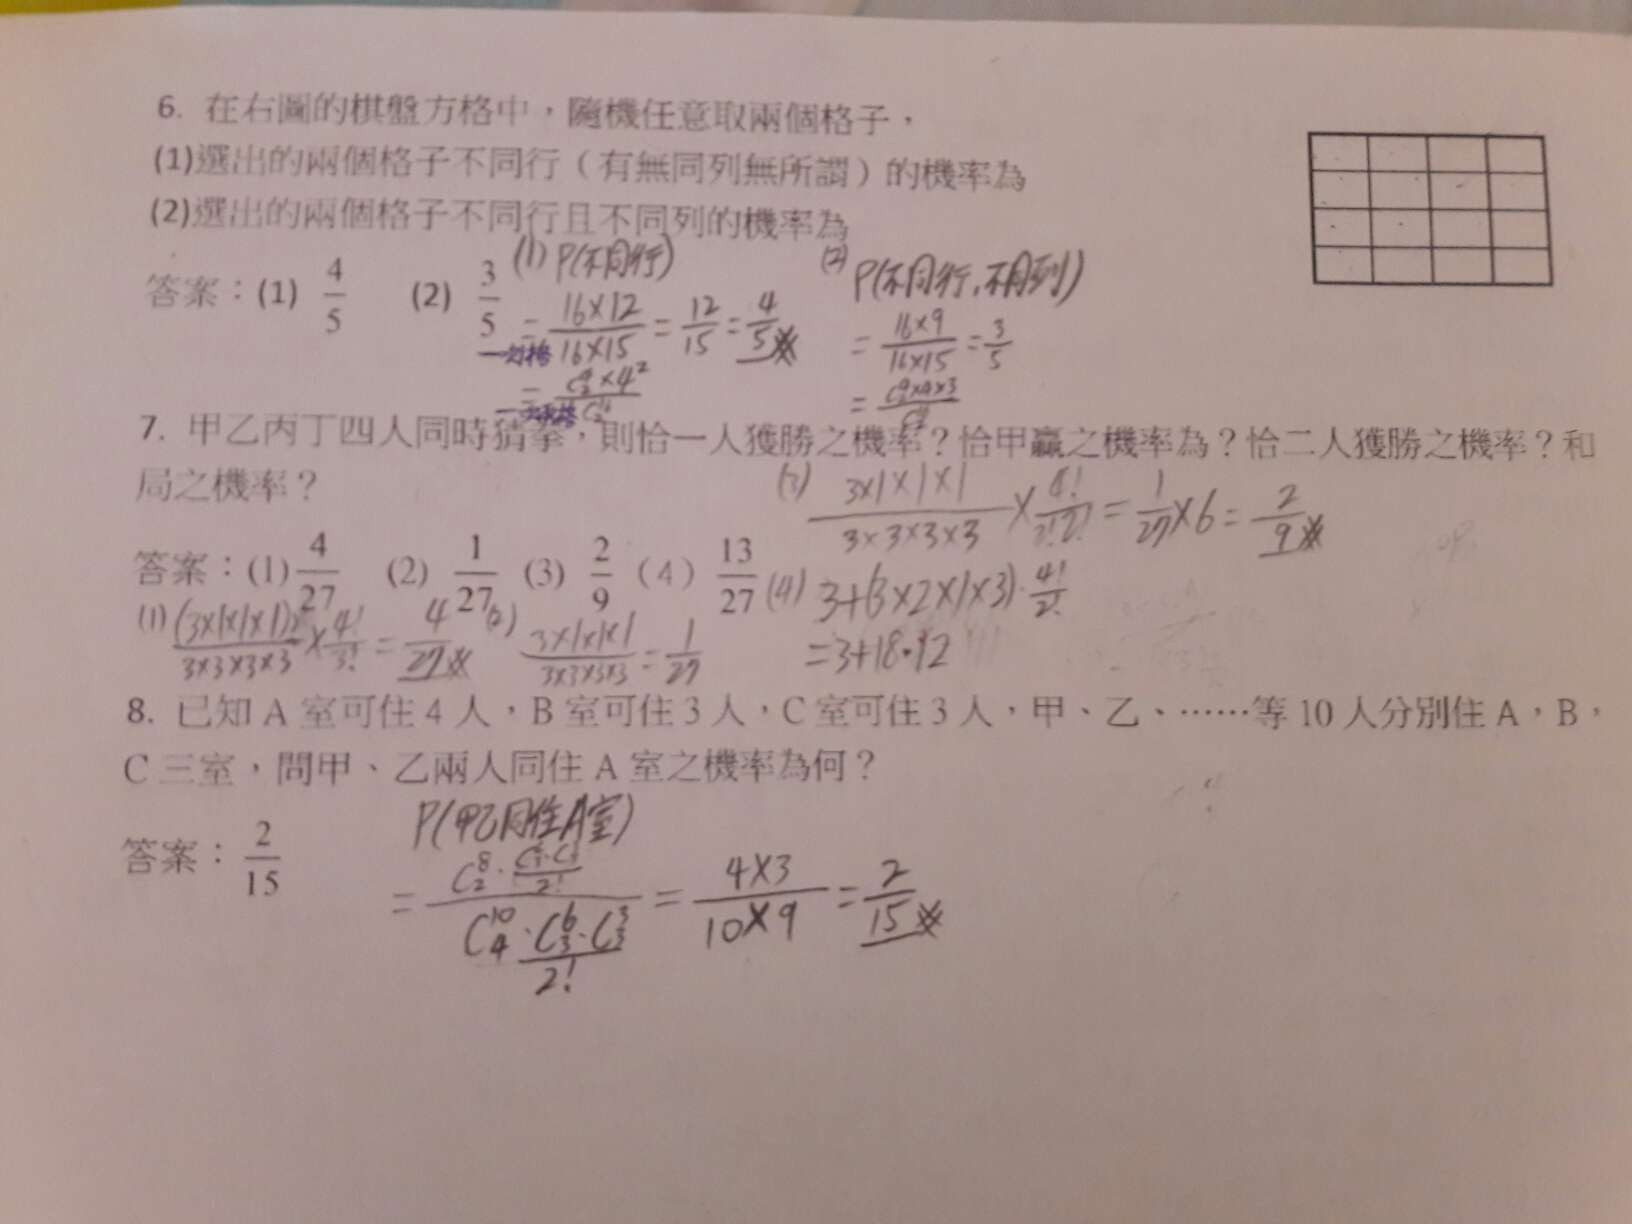 6. 在右圖的棋盤方格中，隨機任意取兩個格子，
(1)選出的兩個格子不同行（有無同列無所謂）的機率為
(2)選出的兩個格子不同行且不同列的機率為
答案：(1) 4/5 (2) 3/5
(1) P(不同行)
= 16×12/16×15 = 12/15 = 4/5
= C⁴₂×4²/
(2) P(不同行,不同列)
= 16×9/16×15 = 3/5
7. 甲乙丙丁四人同時猜拳，則恰一人獲勝之機率？恰甲贏之機率為？恰二人獲勝之機率？和
局之機率？
答案：(1) 4/27 (2) 1/27 (3) 2/9 （4） 13/27
(1) (3×1×1×1)/3×3×3×3 × 4!/3! = 4/27
(2) 3×1×1×1/3×3×3×3 = 1/27
(3) 3×1×1×1/3×3×3×3 × 4!/2!2! = 1/27 × 6 = 2/9
(4) 3+(3×2×1×3)·4!/2!
=3+18·12
8. 已知 A 室可住 4 人，B 室可住 3 人，C 室可住 3 人，甲、乙、……等 10 人分別住 A，B，
C 三室，問甲、乙兩人同住 A 室之機率為何？
答案： 2/15
P(甲乙同住A室)
= C⁸₂·C⁶₃·C³₃/2! / C¹⁰₄·C⁶₃·C³₃/2! = 4×3/10×9 = 2/15